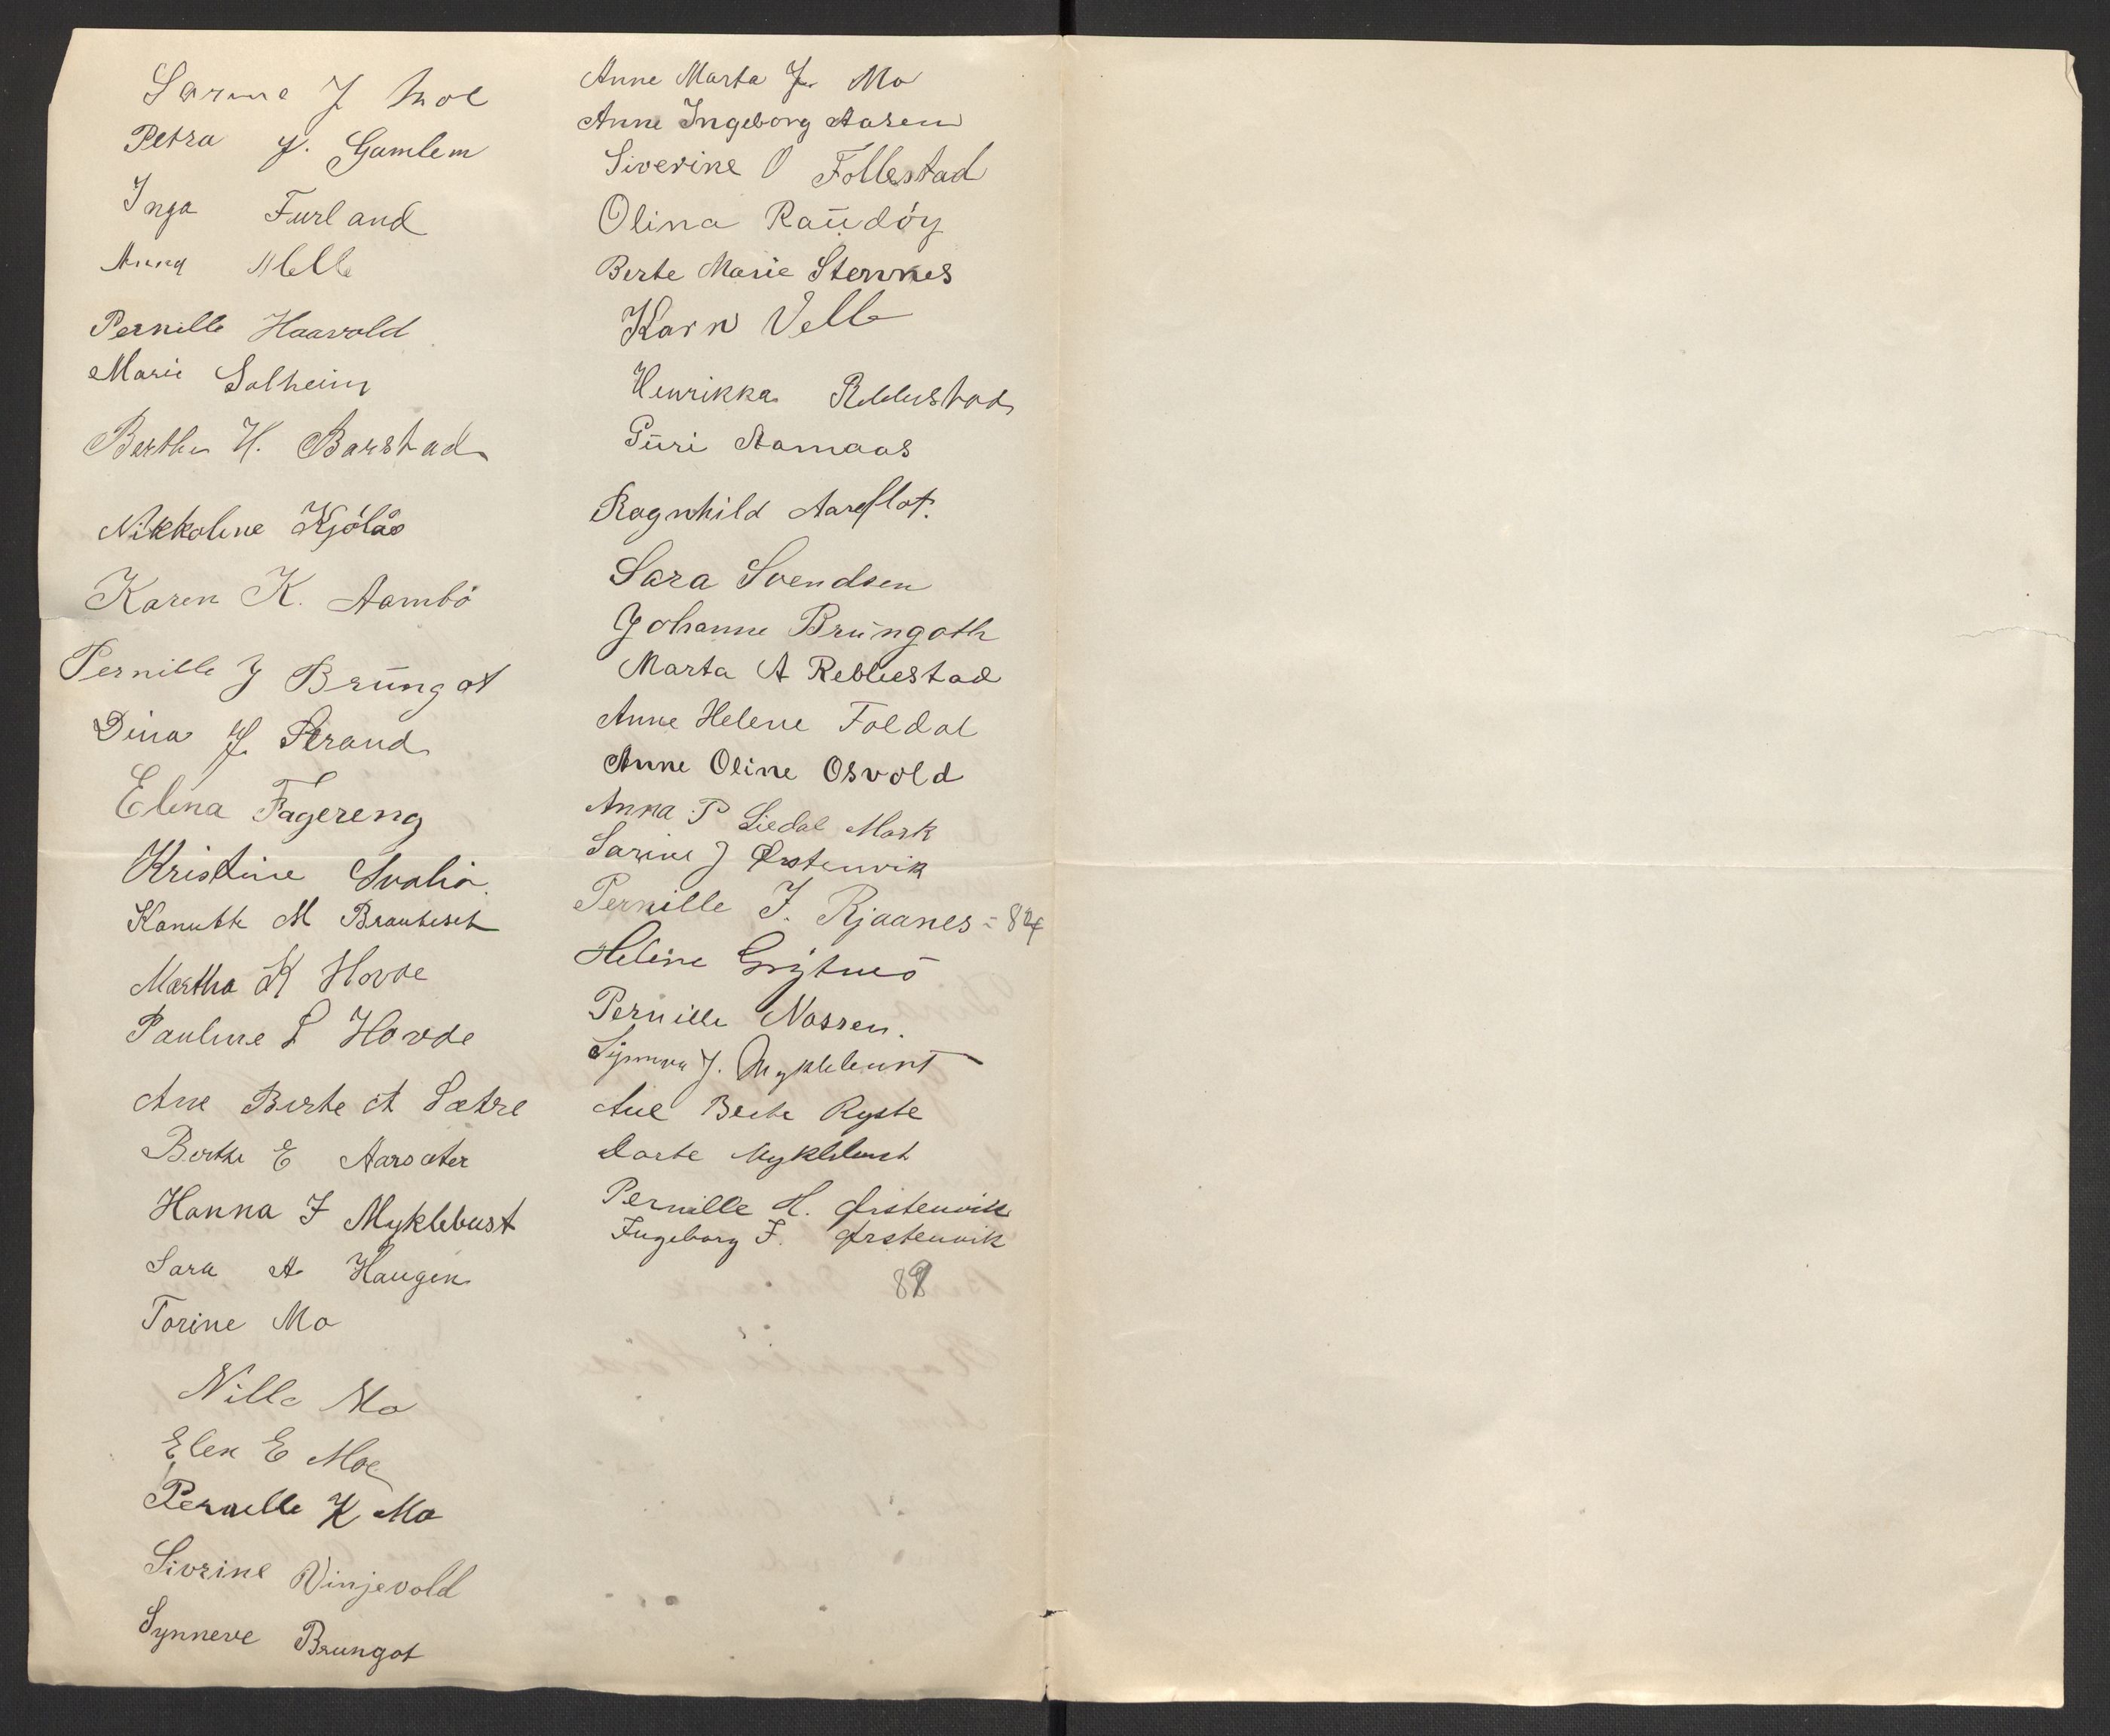 Sarine J Moe
Petra J. Gamlem
Inga Furland
Anna Melle
Pernille Haavold
Marie Solheim
Berthe H. Barstad
Nikkoline Kjólås
Karen K. Aambö
Pernille J Brüngot
Dina J. Strand
Elina Fagereng
Kristine Svalia
Kanutte M Brauteset
Martha K Hovde
Pauline L Hovde
Ane Berte A Sætre
Berthe E Aarsæter
Hanna J Myklebust
Sara A Haugen
Torine Mo
Nille Mo
Elen E Moe
Pernelle K Mo
Sivrine Vinjevold
Synneve Brungot
Anne Marta J. Mo
Anne Ingeborg Aasen
Siverine O Follestad
Olina Raüdöy
Berte Marie Stennes
Karn Velle
Henrikka Rebbestad
Püri Aamaas
Ragnhild Aareflot.
Sara Svendsen
Johanne Brüngoth
Marta A Rebbestad
Anne Helene Foldal
Anne Oline Osvold
Anna P Liedal Mork
Sarine J Ørstenvik
Pernille J. Rjaanes = 84
Heline Grytnes
Pernille Nossen.
Synneva J. Myklebust
Ane Berte Ryste
Dorte Myklebust
Pernille H. Ørstenvik
Ingeborg J. Ørstenvik